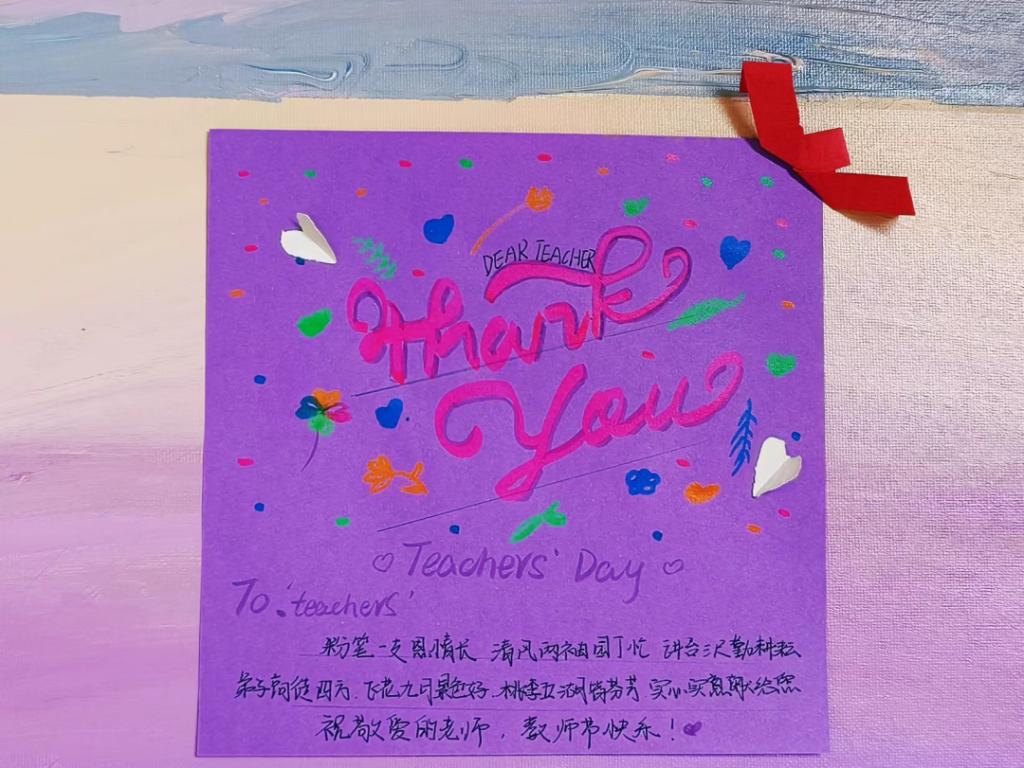 DEAR TEACHER
Thank
You
Teachers' Day
To: 'teachers'
粉笔一支恩情长 清风两袖园丁忙 讲台三尺勤耕耘
弟子向往四方 飞花九月景色好 桃李五湖皆芬芳 实心实意献给您
祝敬爱的老师，教师节快乐！